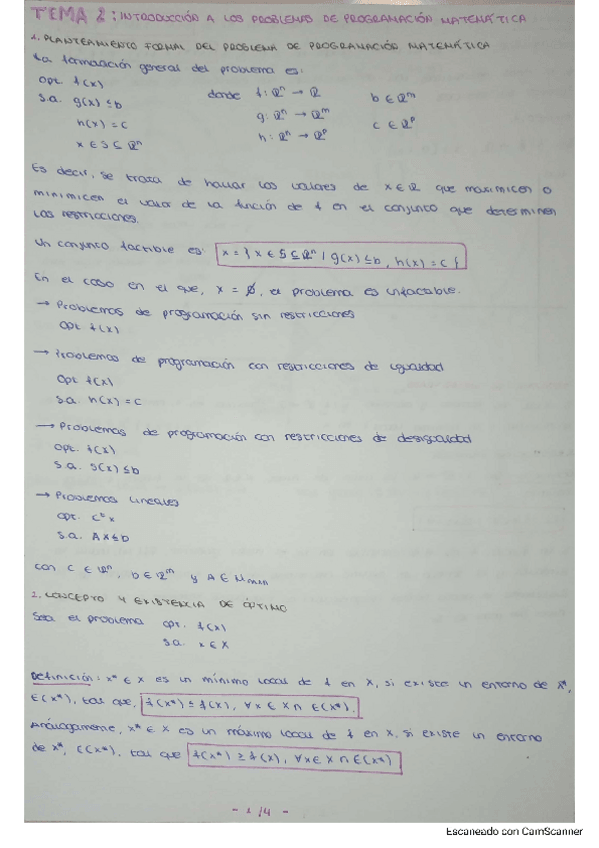 TEMA 2: INTRODUCCIÓN A LOS PROBLEMAS DE PROGRAMACIÓN MATEMÁTICA
1. PLANTEAMIENTO FORMAL DEL PROBLEMA DE PROGRAMACIÓN MATEMÁTICA
La formulación general del problema es:
opt. f(x) donde f: ℝⁿ → ℝ b ∈ ℝᵐ
s.a. g(x) ≤ b g: ℝⁿ → ℝᵐ c ∈ ℝᵖ
h(x) = c h: ℝⁿ → ℝᵖ
x ∈ S ⊆ ℝⁿ
Es decir, se trata de hallar los valores de x ∈ ℝ que maximicen o
minimicen el valor de la función de f en el conjunto que determinen
las restricciones.
Un conjunto factible es: x = { x ∈ S ⊆ ℝⁿ / g(x) ≤ b, h(x) = c }
En el caso en el que, x = ∅, el problema es infactible.
→ Problemas de programación sin restricciones
opt. f(x)
→ Problemas de programación con restricciones de igualdad
opt. f(x)
s.a. h(x) = c
→ Problemas de programación con restricciones de desigualdad
opt. f(x)
s.a. g(x) ≤ b
→ Problemas lineales
opt. cᵗx
s.a. Ax ≤ b
con c ∈ ℝⁿ, b ∈ ℝᵐ y A ∈ Mₘₓₙ
2. CONCEPTO Y EXISTENCIA DE ÓPTIMO
Sea el problema opt. f(x)
s.a. x ∈ X
Definición: x* ∈ X es un mínimo local de f en X, si existe un entorno de x*,
E(x*), tal que, f(x*) ≤ f(x), ∀x ∈ X ∩ E(x*).
Análogamente, x* ∈ X es un máximo local de f en X, si existe un entorno
de x*, E(x*), tal que f(x*) ≥ f(x), ∀x ∈ X ∩ E(x*)
- 1/4 -
Escaneado con CamScanner